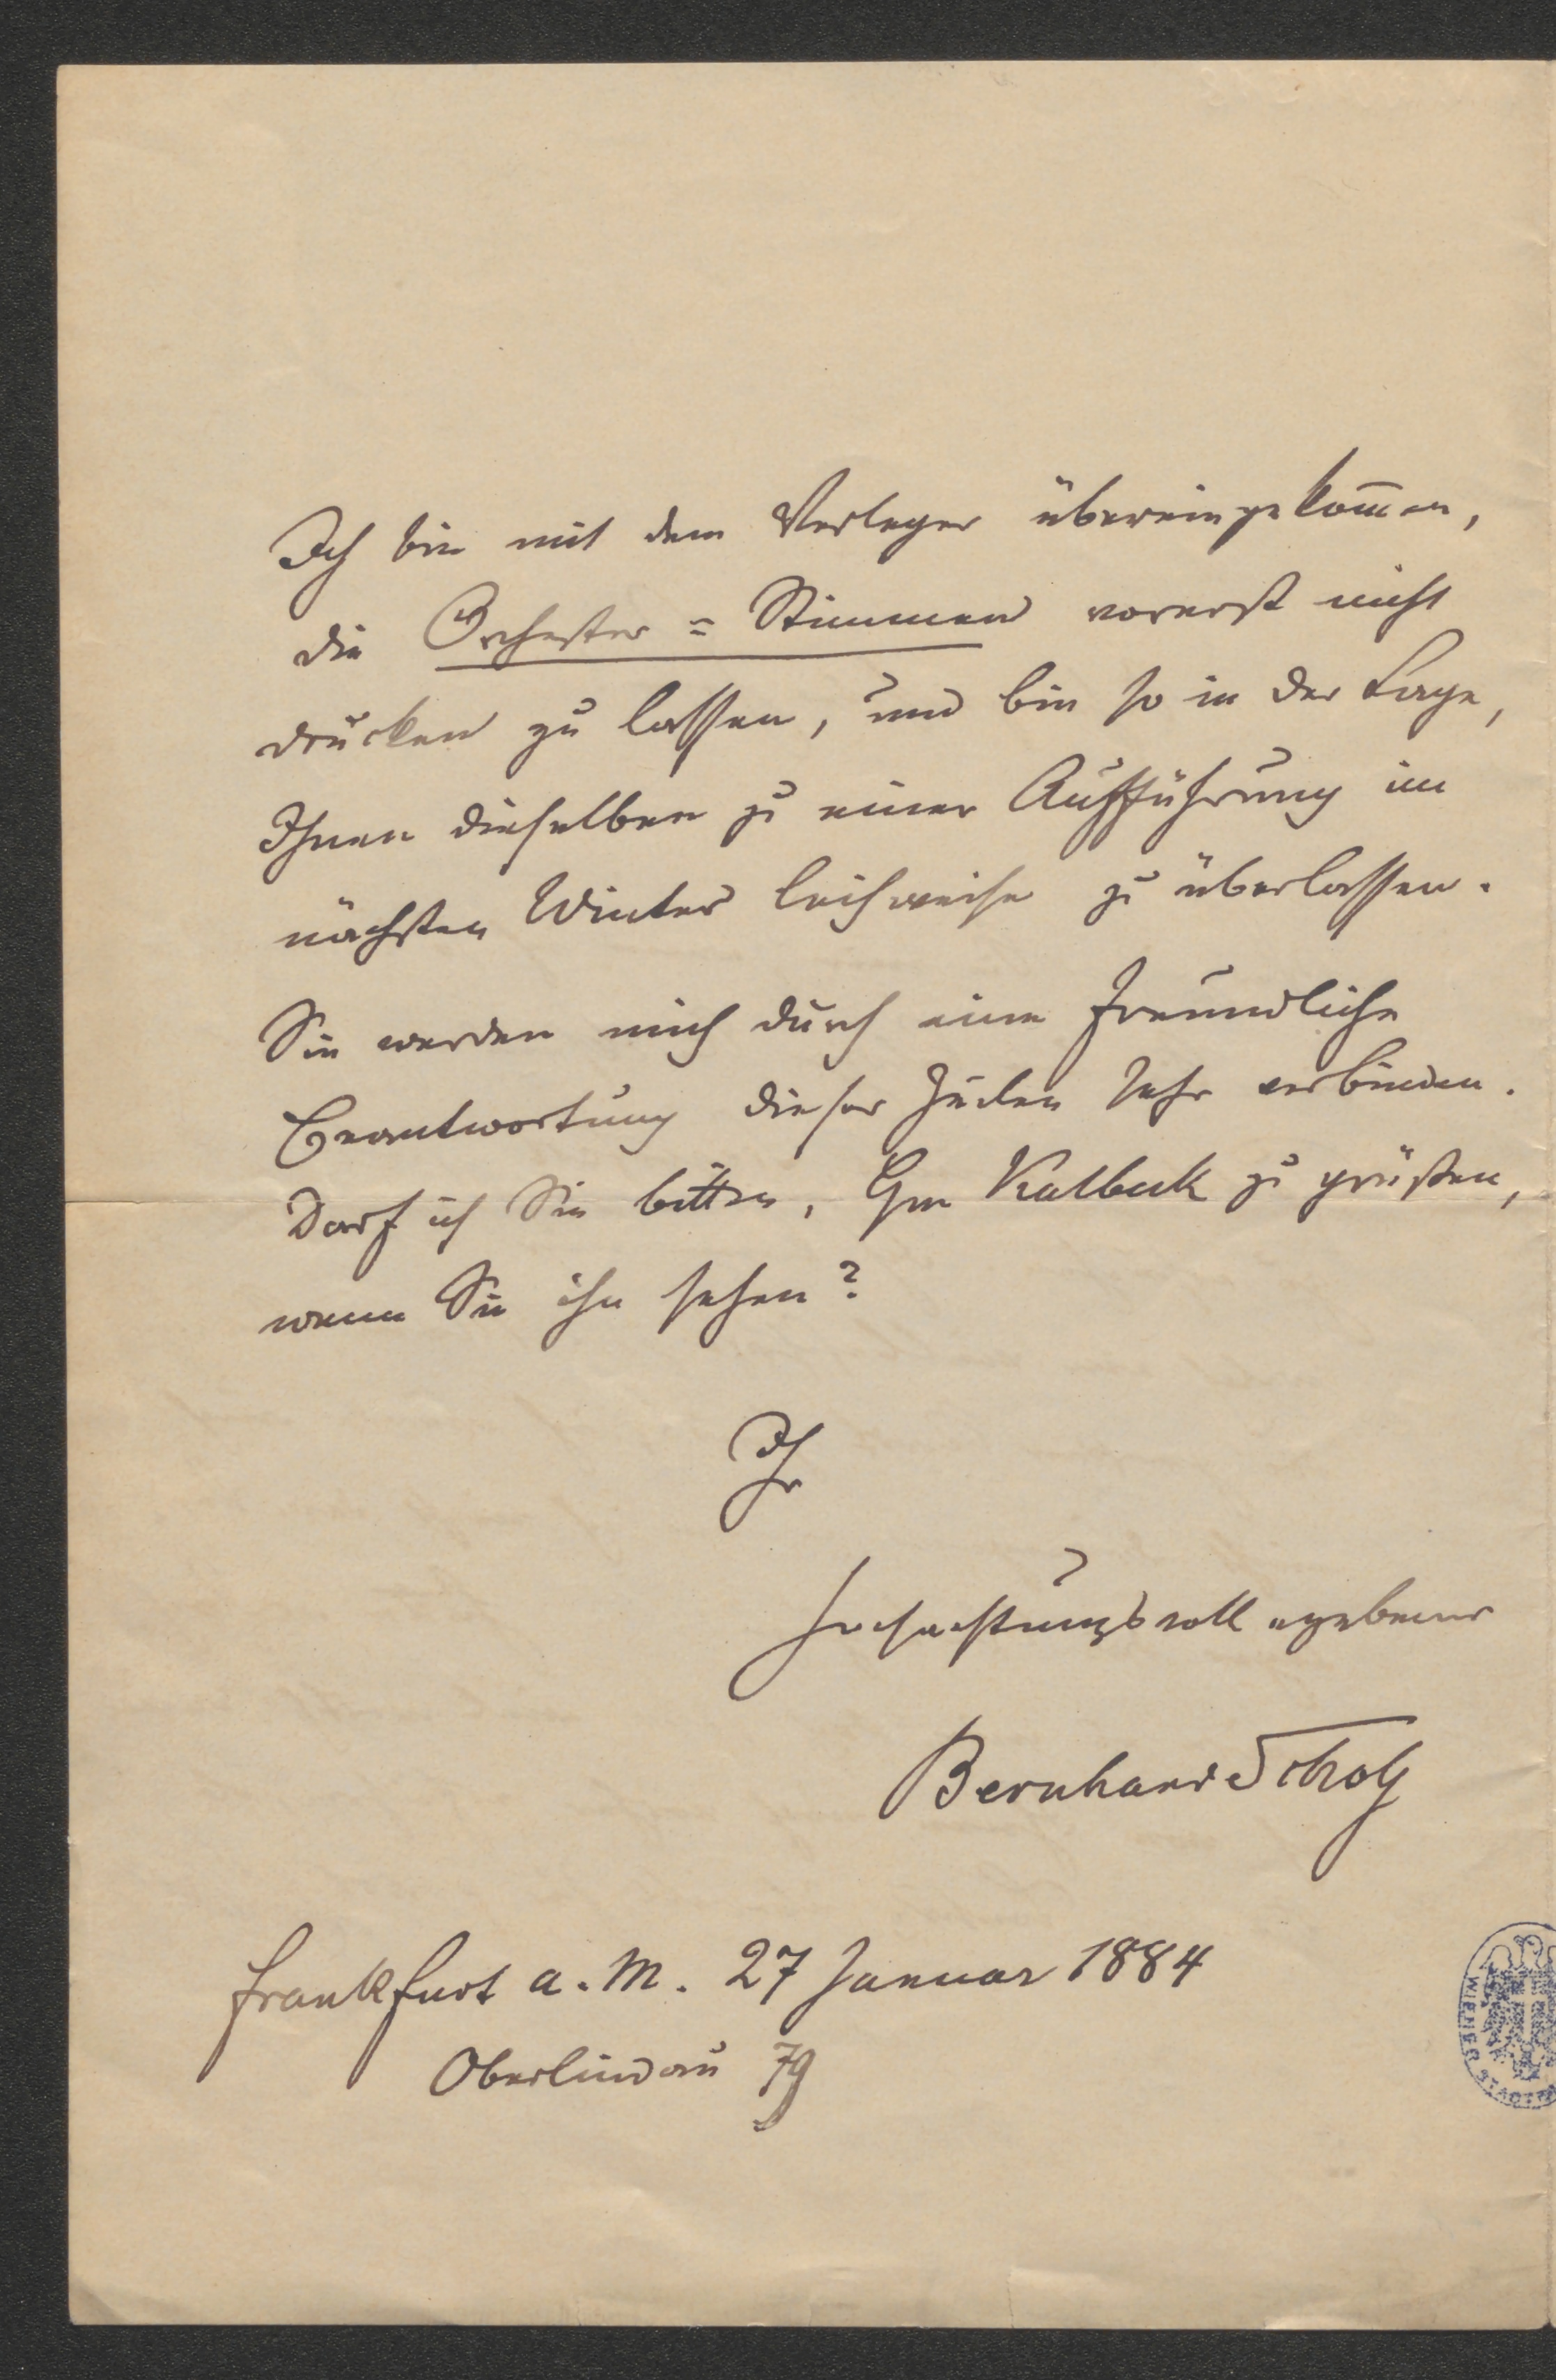 Ich bin mit dem Verleger übereingekom̄en,
die Orchester = Stimmen vorerst nicht
drucken zu lassen, und bin so in der Lage,
Ihnen dieselben zu einer Aufführung im
nächsten Winter leihweise zu überlassen.
Sie werden mich durch eine freundliche
Beantwortung dieser Zeilen sehr verbinden.
Darf ich Sie bitten, Hrn Kalbeck zu grüßen,
wenn Sie ihn sehen?
Ihr
hochachtungsvoll ergebener
Bernhard Scholz
Frankfurt a. M. 27 Januar 1884
Oberlindau 79
WIENER STADT